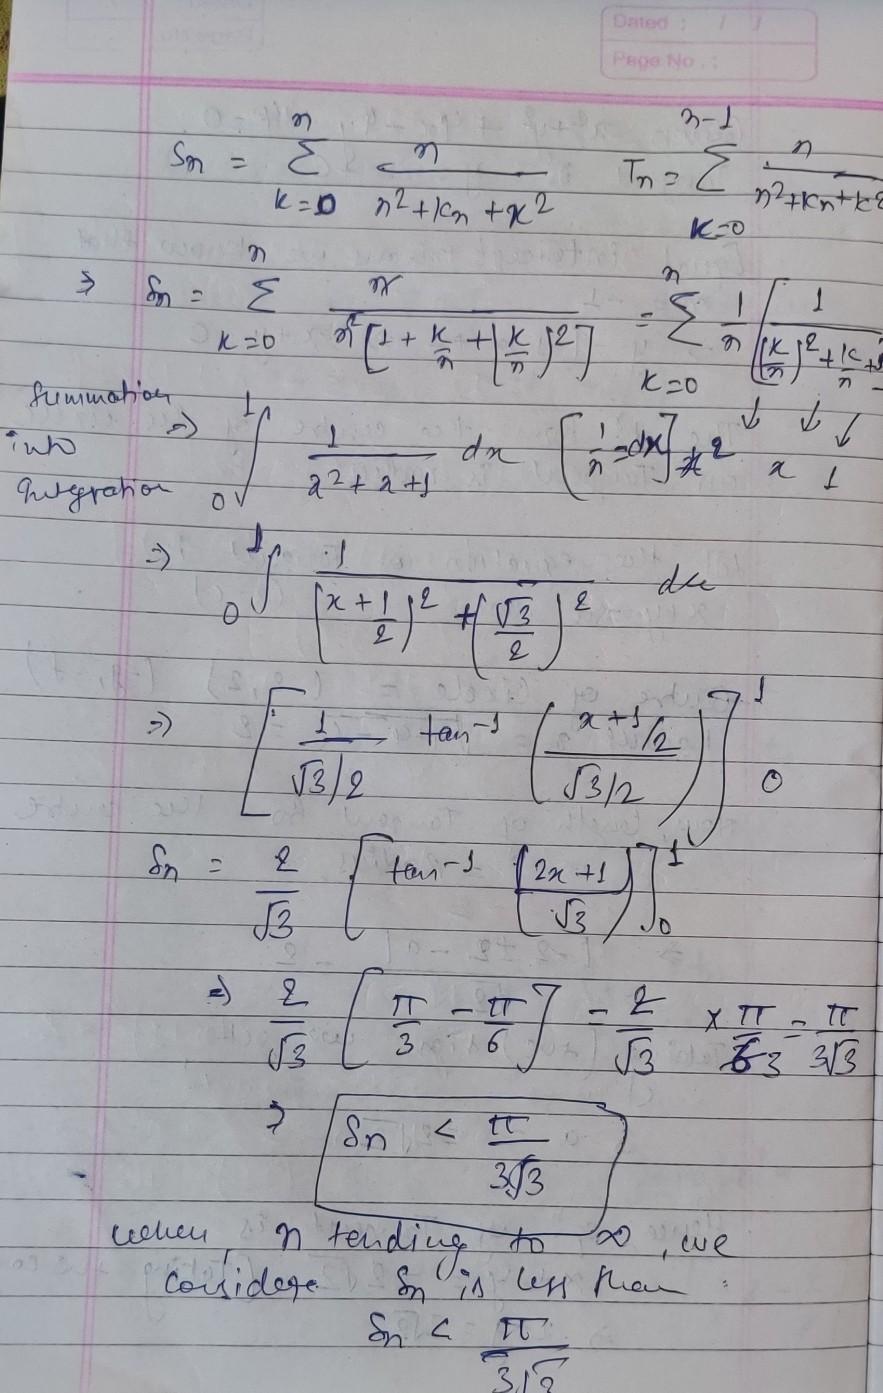 Dated : / /
Page No. :
Sn = n Σ k=0 n/(n²+kn+x²) Tn = n-1 Σ k=0 n/(n²+kn+k²
⇒ Sn = n Σ k=0 n/(n²[1 + k/n + (k/n)²]) = n Σ k=0 1/n [1/((k/n)² + k/n + 1
Summation into Integration ⇒ 0∫1 1/(x²+x+1) dx [1/n = dx] ↓ x² ↓ x ↓ 1
⇒ 0∫1 1/((x + 1/2)² + (√3/2)²) dx
⇒ [1/(√3/2) tan-1 ((x+1/2)/(√3/2))] 1 0
Sn = 2/√3 [tan-1 ((2x+1)/√3)] 1 0
⇒ 2/√3 [π/3 - π/6] = 2/√3 × π/6 3 = π/3√3
⇒ Sn < π/3√3
when, n tending to ∞, we
considere Sn is less than :
Sn < π/3√3